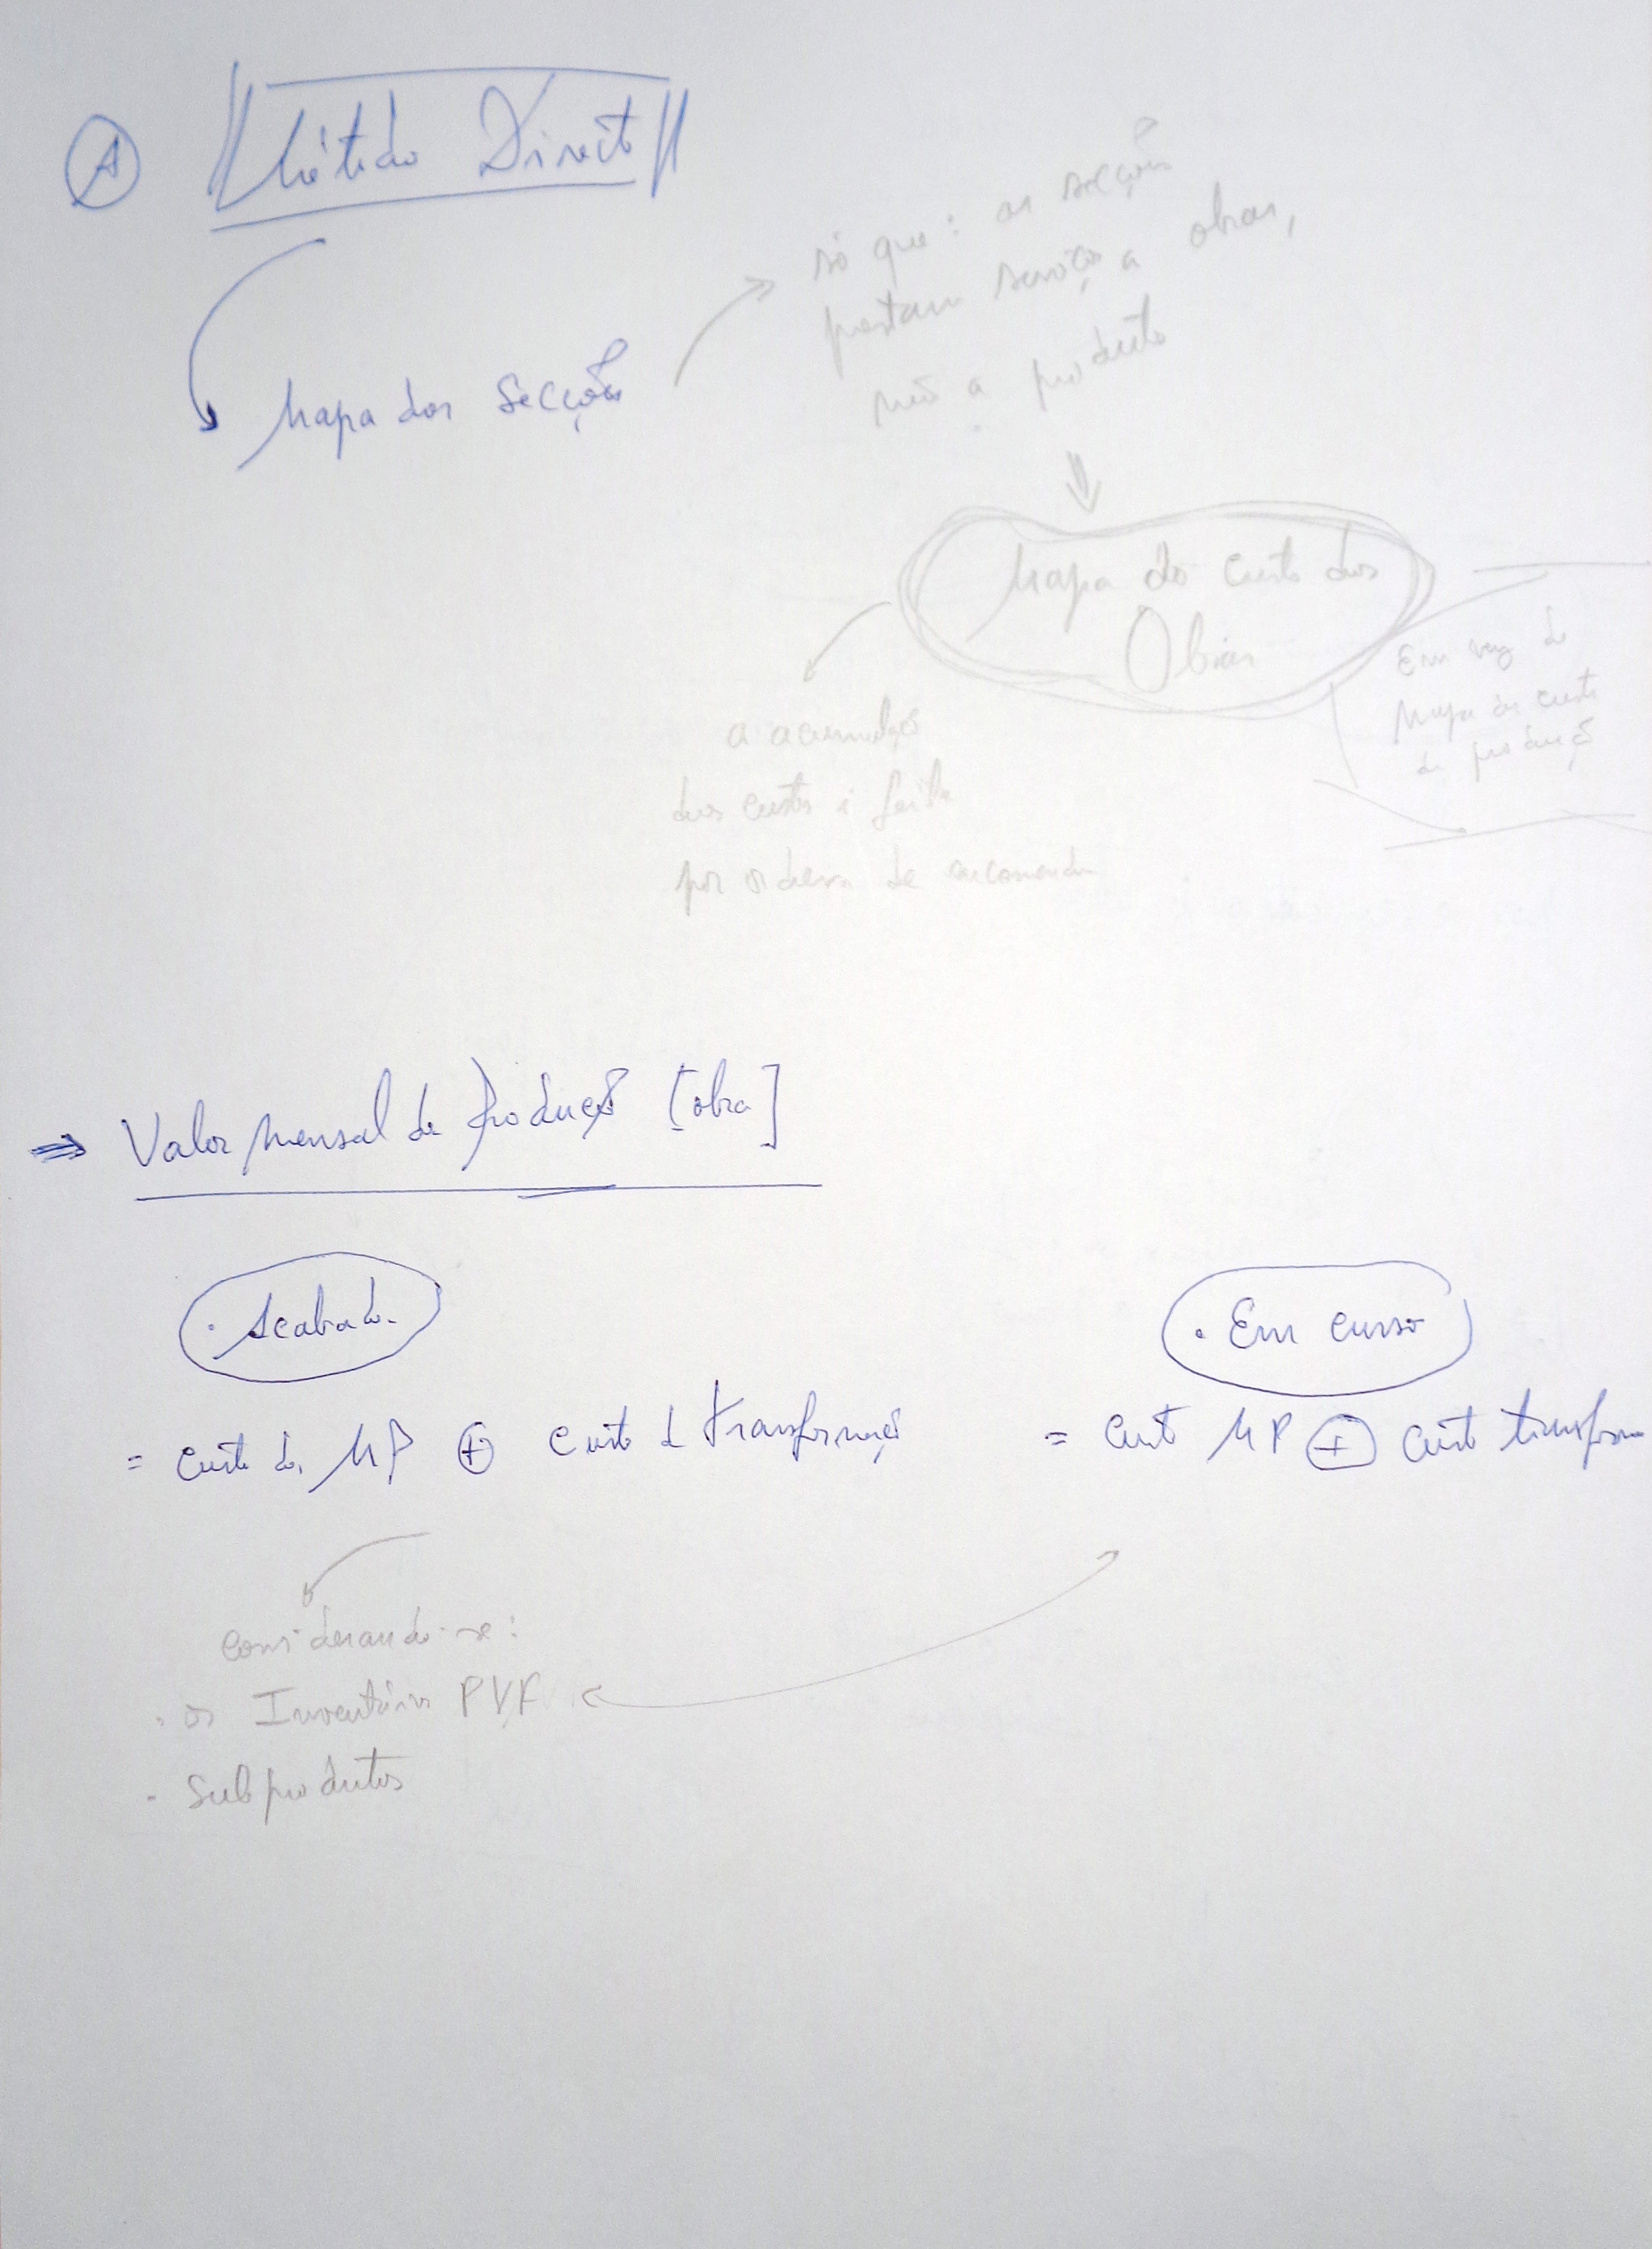 A Método Directo
Mapa das Secções
só que: as secções
prestam serviços a obras,
não a produto
Mapa do custo das
Obras
Em vez de
Mapa do custo
de produção
a acumulação
dos custos é feita
por ordem de encomenda
⇒ Valor mensal da Produção [obra]
· Acabada
· Em curso
= custo da MP + custo d transformação
= Custo MP + custo transform
Considerando-se:
· os Inventários PVF
· Subprodutos